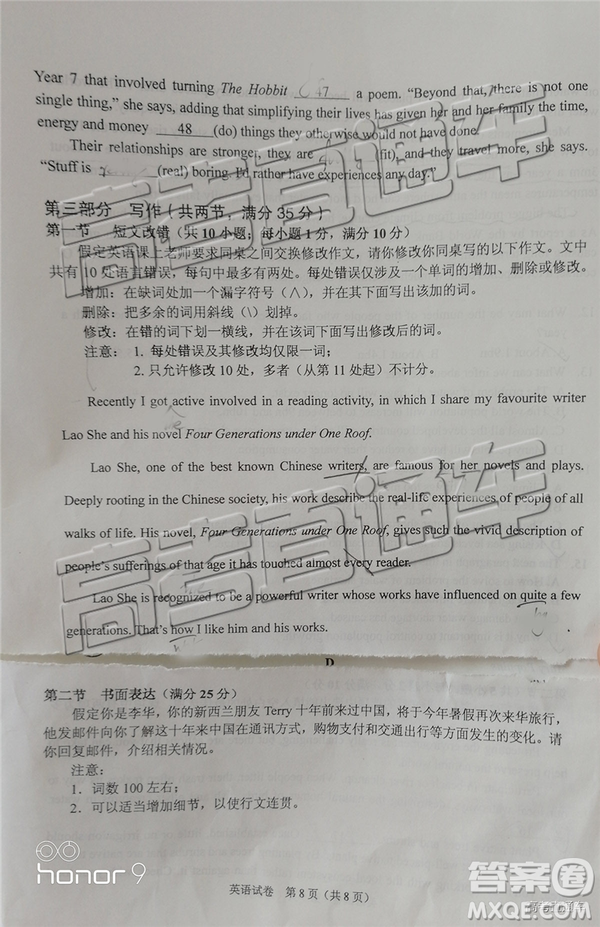 Year 7 that involved turning The Hobbit 47 a poem. “Beyond that, there is not one
single thing,” she says, adding that simplifying their lives has given her and her family the time,
energy and money 48 (do) things they otherwise would not have done.
Their relationships are stronger, they are (fit), and they travel more, she says.
“Stuff is (real) boring. I'd rather have experiences any day.”
第三部分 写作（共两节，满分 35 分）
第一节 短文改错（共 10 小题；每小题 1 分，满分 10 分）
假定英语课上老师要求同桌之间交换修改作文，请你修改你同桌写的以下作文。文中
共有 10 处语言错误，每句中最多有两处。每处错误仅涉及一个单词的增加、删除或修改。
增加：在缺词处加一个漏字符号（∧），并在其下面写出该加的词。
删除：把多余的词用斜线（\）划掉。
修改：在错的词下划一横线，并在该词下面写出修改后的词。
注意： 1. 每处错误及其修改均仅限一词；
2. 只允许修改 10 处，多者（从第 11 处起）不计分。
Recently I got active involved in a reading activity, in which I share my favourite writer
Lao She and his novel Four Generations under One Roof.
Lao She, one of the best known Chinese writers, are famous for her novels and plays.
Deeply rooting in the Chinese society, his work describe the real-life experiences of people of all
walks of life. His novel, Four Generations under One Roof, gives such the vivid description of
people's sufferings of that age it has touched almost every reader.
Lao She is recognized to be a powerful writer whose works have influenced on quite a few
generations. That's how I like him and his works.
D
第二节 书面表达（满分 25 分）
假定你是李华，你的新西兰朋友 Terry 十年前来过中国，将于今年暑假再次来华旅行，
他发邮件向你了解这十年来中国在通讯方式，购物支付和交通出行等方面发生的变化。请
你回复邮件，介绍相关情况。
注意：
1．词数 100 左右；
2．可以适当增加细节，以使行文连贯。
honor 9
英语试卷 第 8 页（共 8 页）
高考直通车
高考直通车
高考直通车
答案圈
MXQE.COM